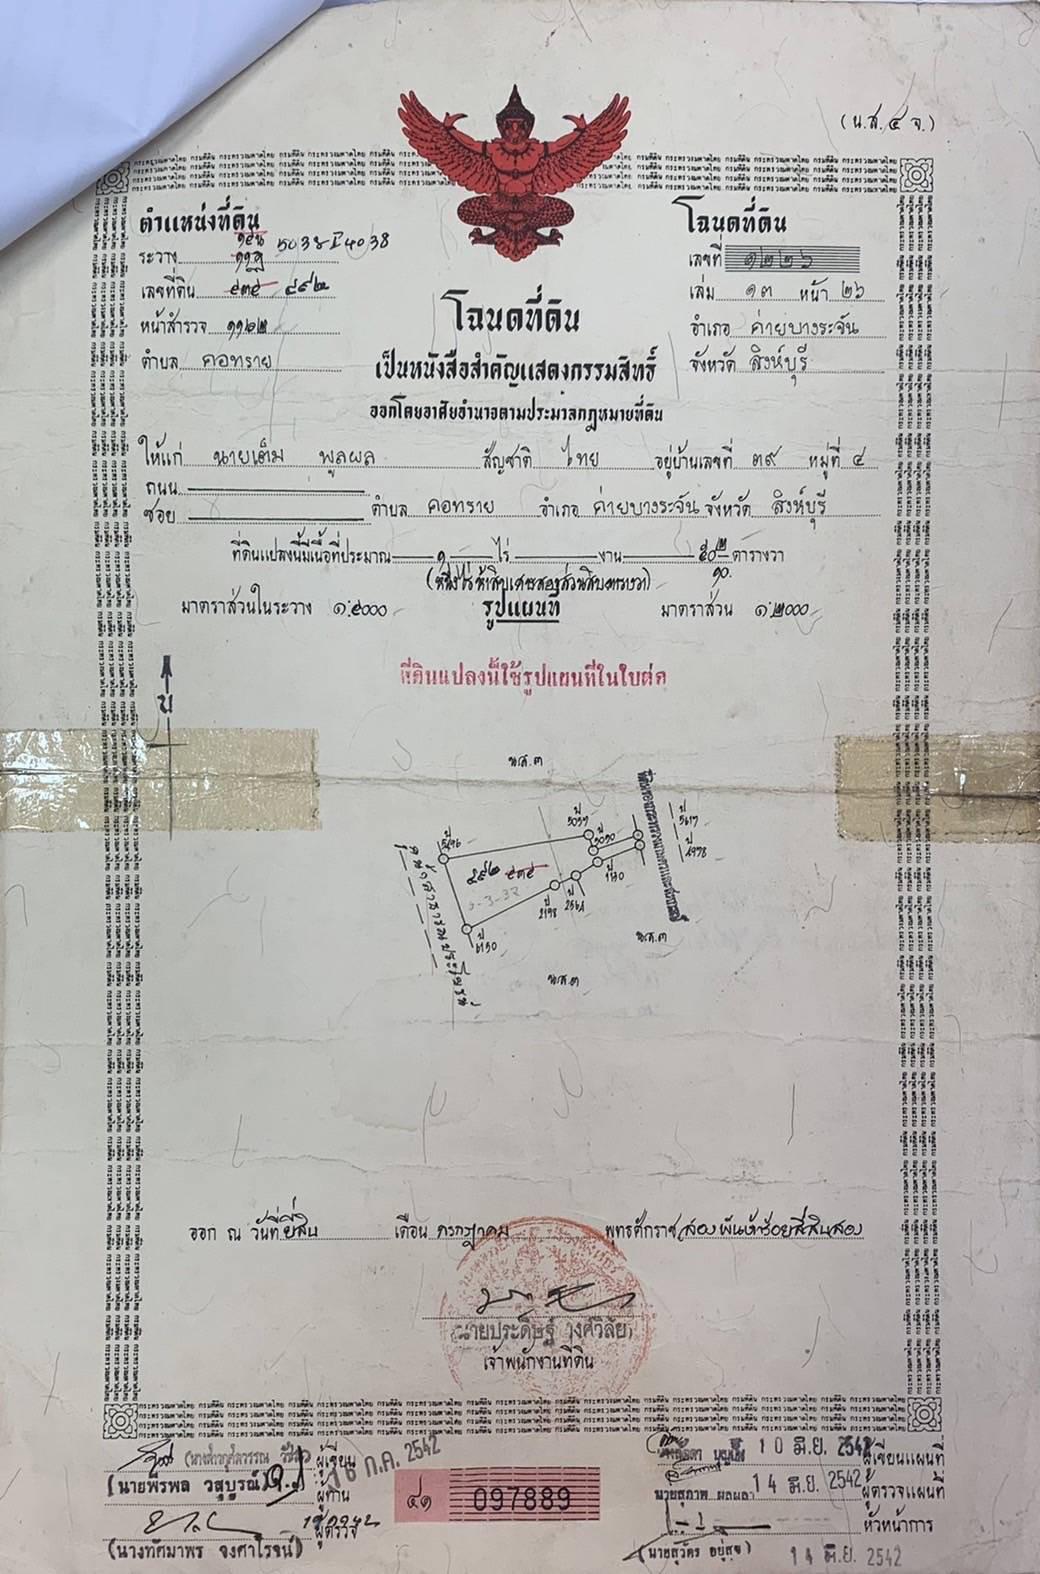 (น.ส.๔ จ.)
ตำแหน่งที่ดิน
โฉนดที่ดิน
ระวาง 5038 I 4038
เลขที่ ๑๒๒๖
เลขที่ดิน ๕๓๕ ๔๙๒
เล่ม ๑๓ หน้า ๒๖
หน้าสำรวจ ๑๑๖๒
อำเภอ ค่ายบางระจัน
ตำบล คอทราย
จังหวัด สิงห์บุรี
โฉนดที่ดิน
เป็นหนังสือสำคัญแสดงกรรมสิทธิ์
ออกโดยอาศัยอำนาจตามประมวลกฎหมายที่ดิน
ให้แก่ นายเต็ม พูลผล สัญชาติ ไทย อยู่บ้านเลขที่ ๓๙ หมู่ที่ ๔
ถนน
ซอย ตำบล คอทราย อำเภอ ค่ายบางระจัน จังหวัด สิงห์บุรี
ที่ดินแปลงนี้มีเนื้อที่ประมาณ ๑ ไร่ งาน ๕๐ ๒/๑๐ ตารางวา
(หนึ่งไร่ ห้าสิบเศษสองส่วนสิบตารางวา)
มาตราส่วนในระวาง ๑:๔๐๐๐ รูปแผนที่ มาตราส่วน ๑:๒๐๐๐
ที่ดินแปลงนี้ใช้รูปแผนที่ในใบต่อ
น
น.ส.๓
ป 5617
ป 4978
ป 5496
๔๙๒ ๕๓๕
ป 2198
ป 6150
น.ส.๓
น.ส.๓
ออก ณ วันที่ ยี่สิบ เดือน กรกฎาคม พุทธศักราช สองพันห้าร้อยสี่สิบสอง
(นายประดิษฐ์ วงศ์วิลัย)
เจ้าพนักงานที่ดิน
ผู้เขียน
(นายพีรพล วสุบูรณ์)
ผู้ทาน
ก.ค. 2542
ผู้ตรวจ
(นางทัศมาพร จงศาโรจน์)
๔๑ 097889
10 มิ.ย. 2542 ผู้เขียนแผนที่
นายสุภาพ ผลผลา 14 มิ.ย. 2542 ผู้ตรวจแผนที่
หัวหน้าการ
(นายสุวัคร อยู่สุข) 14 มิ.ย. 2542